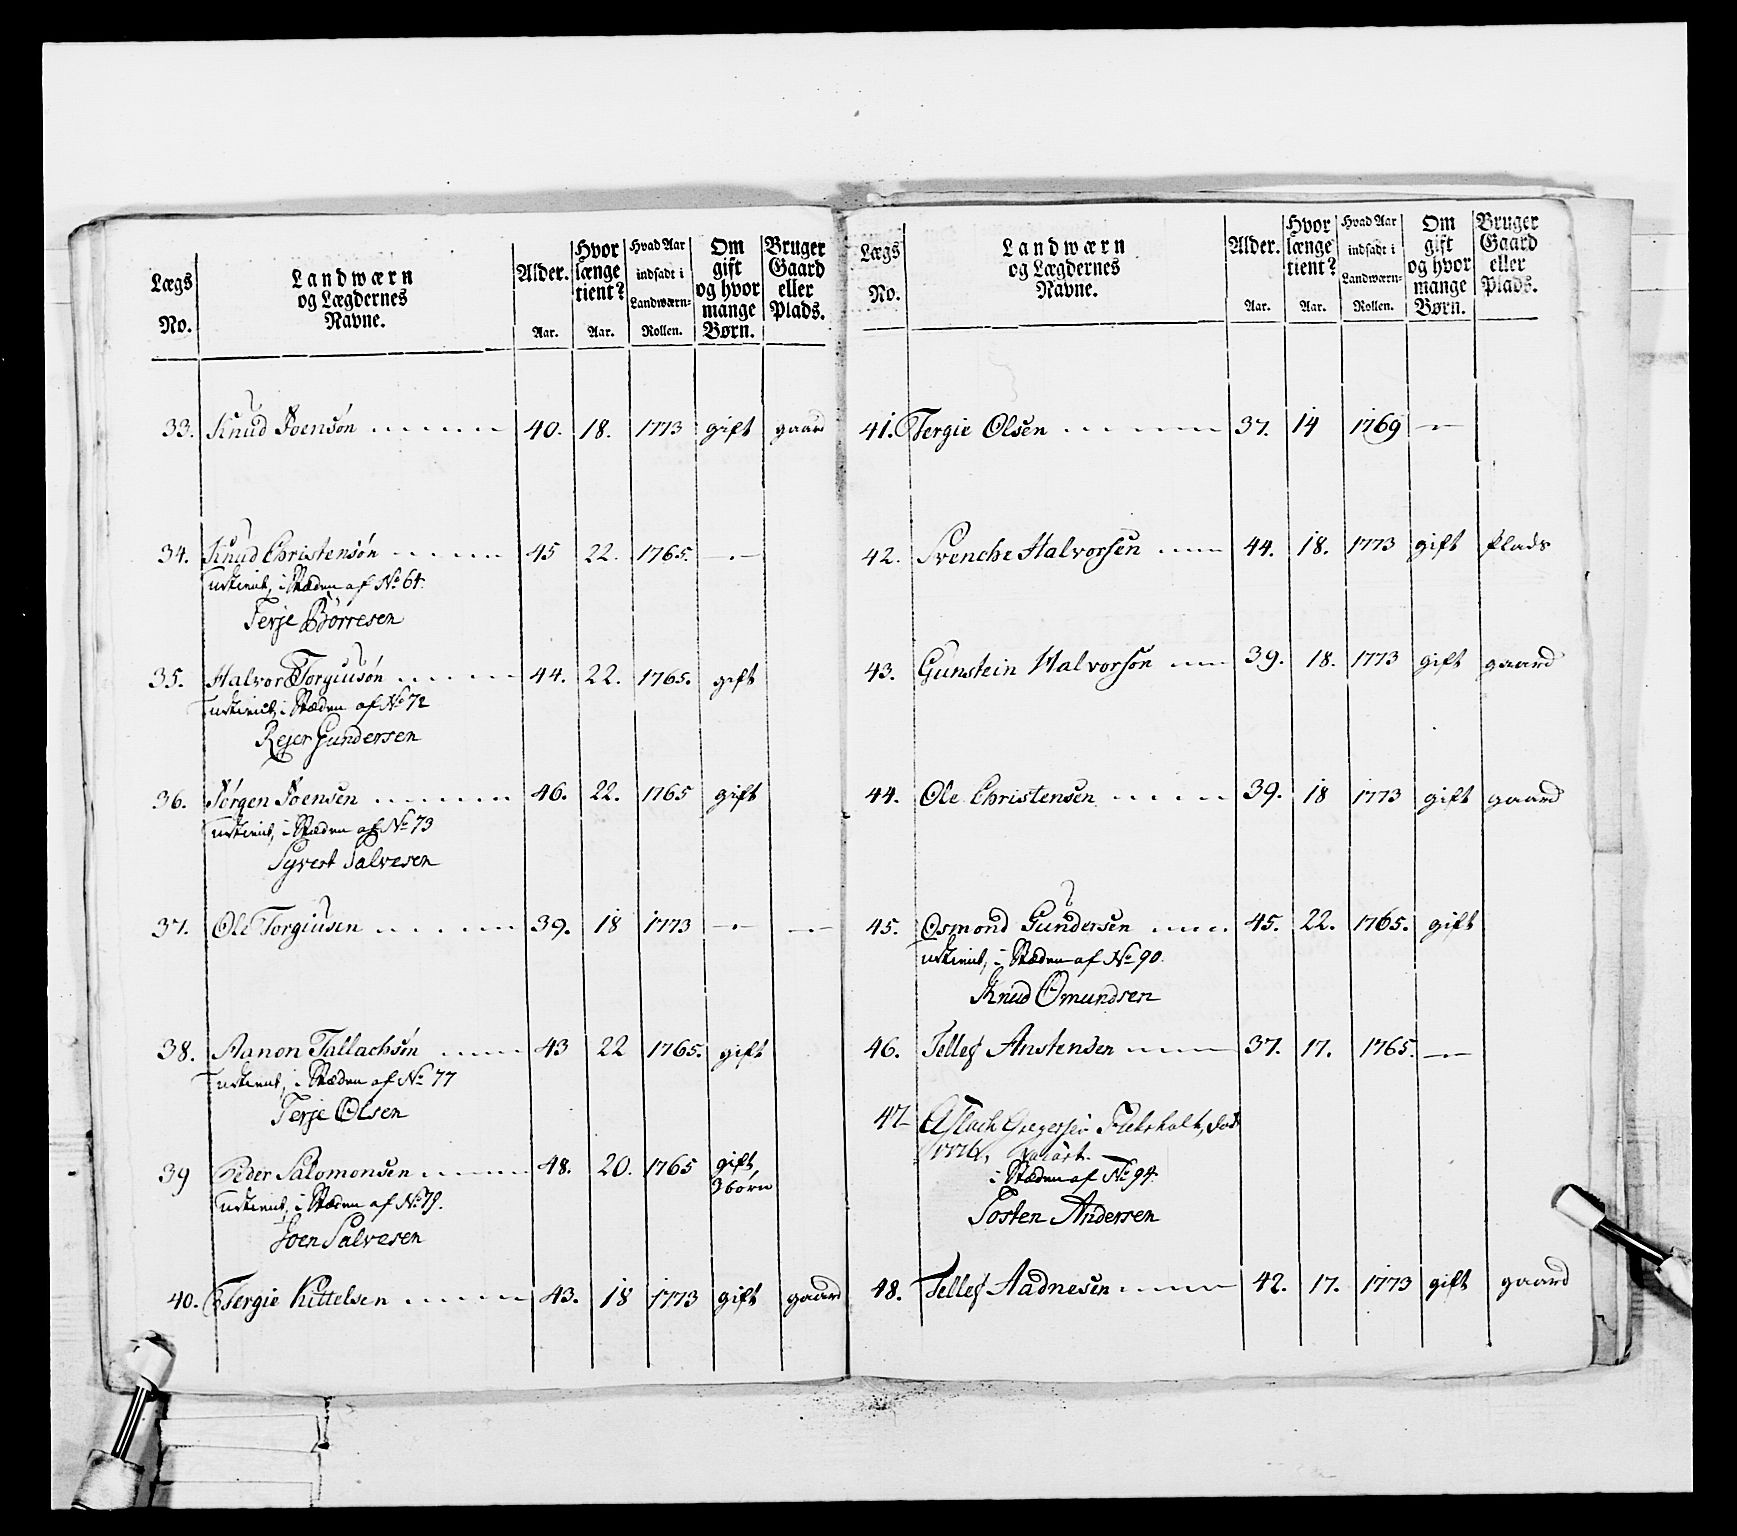 Lægs No. | Landwærn og Lægdernes Navne. | Alder. Aar. | Hvor længe tient? Aar. | Hvad Aar indsadt i Landwærn-Rollen. | Om gift og hvor mange Børn. | Bruger Gaard eller Plads.
33. Knud Joensøn 40. 18. 1773 gift gaard
34. Knud Christensøn 45 22. 1765. —
udtient, i Stæden af No 64.
Terje Börresen
35. Halvor Torgiusøn 44. 22. 1765. gift
udtient, i Stæden af No 72
Rejer Gundersen
36. Jørgen Joensen 46. 22. 1765 gift
udtient, i Stæden af No 73
Syvert Salvesen
37. Ole Torgiusen 39. 18 1773 — —
38. Aanon Tallachsøn 43 22 1765. gift
udtient, i Stæden af No 77
Terje Olsen
39 Peder Salomonsen 48. 20. 1765 gift,
3 børn
udtient, i Stæden af No 79.
Joen Salvesen
40. Tergie Kittelsen 43. 18 1773 gift gaard
Lægs No. | Landwærn og Lægdernes Navne. | Alder. Aar. | Hvor længe tient? Aar. | Hvad Aar indsadt i Landwærn-Rollen. | Om gift og hvor mange Børn. | Bruger Gaard eller Plads.
41. Tergie Olsen 37. 14 1769 —
42. Svenche Halvorsen 44. 18. 1773 gift plads
43. Gunstein Halvorson 39. 18. 1773 gift gaard
44. Ole Christensen 39. 18 1773 gift gaard
45. Osmond Gundersen 45. 22. 1765. gift
udtient, i Stæden af No 90.
Knud Omundsen
46. Tellef Anstensen 37. 17. 1765. —
47 Aslach Gregersen
1776,
i Stæden af No 94.
Tosten Andersen
48. Tellef Aadnesen 42. 17. 1773 gift gaard